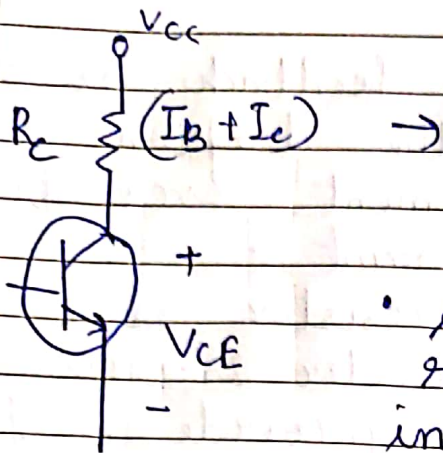 VCC
RC (IB + IC) →
+
VCE
-
in